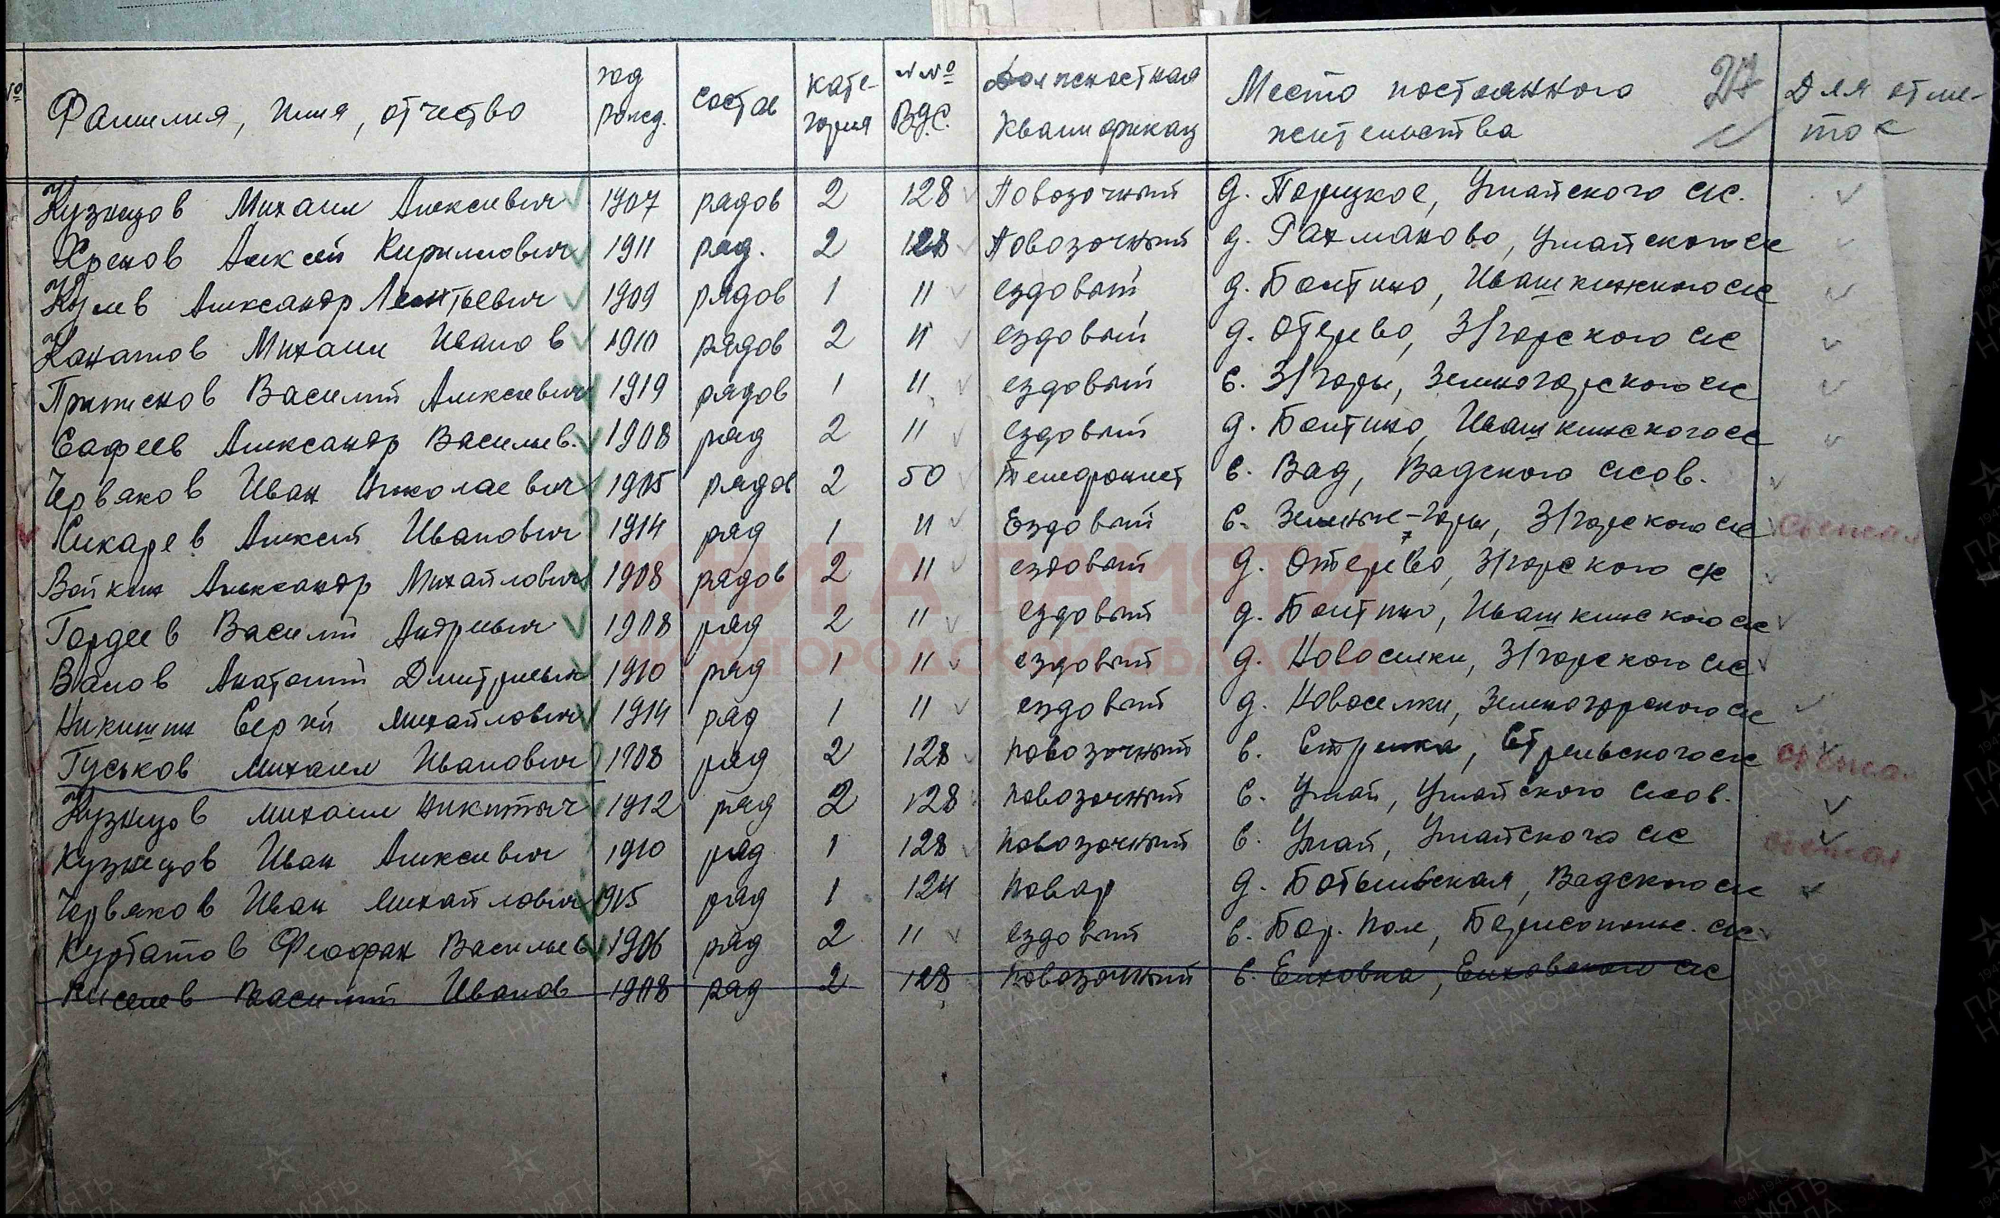 № Фамилия, имя, отчество год рожд. состав категория №№ ВУС. Должностная квалификац Место постоянного жительства 27 Для отметок
Кузнецов Михаил Алексеевич 1907 рядов 2 128 Повозочный д. Порецкое, Умайского с/с.
Хренов Алексей Кириллович 1911 ряд. 2 128 Повозочный д. Рахманово, Умайского с/с
Александр Леонтьевич 1909 рядов 1 11 ездовый д. Болтино, Ивашкинского с/с
Канатов Михаил Иванов 1910 рядов 2 11 ездовый д. Отерево, З/горского с/с
Василий Алексеевич 1919 рядов 1 11 ездовый с. З/горы, Зеленогорского с/с
Сафеев Александр Васильев. 1908 ряд 2 11 ездовый д. Болтино, Ивашкинского с/с
Червяков Иван Николаевич 1905 рядов 2 50 Телефонист с. Вад, Вадского с/сов.
Кикарев Алексей Иванович 1914 ряд 1 11 Ездовый с. Зеленые-горы, З/горского с/с
Войкин Александр Михайлович 1908 рядов 2 11 ездовый д. Отерево, З/горского с/с
Гордеев Василий Андреевич 1908 ряд 2 11 ездовый д. Болтино, Ивашкинского с/с
Валов Анатолий Дмитриевич 1910 ряд 1 11 ездовый д. Новоселки, З/горского с/с
Никишин Сергей Михайлович 1914 ряд 1 11 ездовый д. Новоселки, Зеленогорского с/с
Гуськов Михаил Иванович 1908 ряд 2 128 повозочный с. Стрелка, Стрельского с/с
Кузнецов Михаил Никитыч 1912 ряд 2 128 повозочный с. Умай, Умайского с/сов.
Кузнецов Иван Алексеевич 1910 ряд 1 128 повозочный с. Умай, Умайского с/с
Червяков Иван Михайлович 1915 ряд 1 124 повар д. Вадского с/с
Курбатов Феофан Васильев 1906 ряд 2 11 ездовый с. Бор. Пол,
Киселев Василий Иванов 1908 ряд 2 128 повозочный с. Елховка, Елховского с/с
КНИГА ПАМЯТИ
НИЖЕГОРОДСКОЙ ОБЛАСТИ
ПАМЯТЬ
НАРОДА